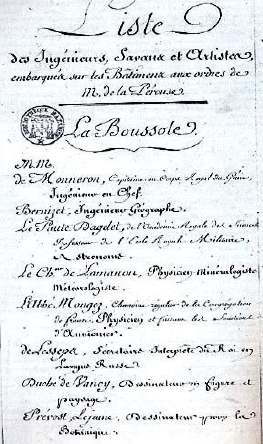 Liste
des Ingénieurs, Savans et Artistes
embarqués sur les Bâtimens aux ordres de
M. de la Pérouse
La Boussole.
M.M.
de Monneron, Capitaine en Corps Royal du Génie,
Ingénieur en Chef.
Bernizet, Ingénieur Géographe
Le Paute Dagelet, de l'Académie Royale des Sciences
Professeur de l'Ecole Royale Militaire
Astronome.
Le Ch.er de Lamanon, Physicien Minéralogiste
Météorologiste.
L'Abbé Mongez, Chanoine régulier de la Congrégation
de france, Physicien et faisant les fonctions
d'Aumônier.
de Lesseps, Secrétaire Interprète du Roi en
Langue Russe
Duché de Vancy, Dessinateur en figure et
paysage.
Prevost Lejeune, Dessinateur pour la
Botanique.